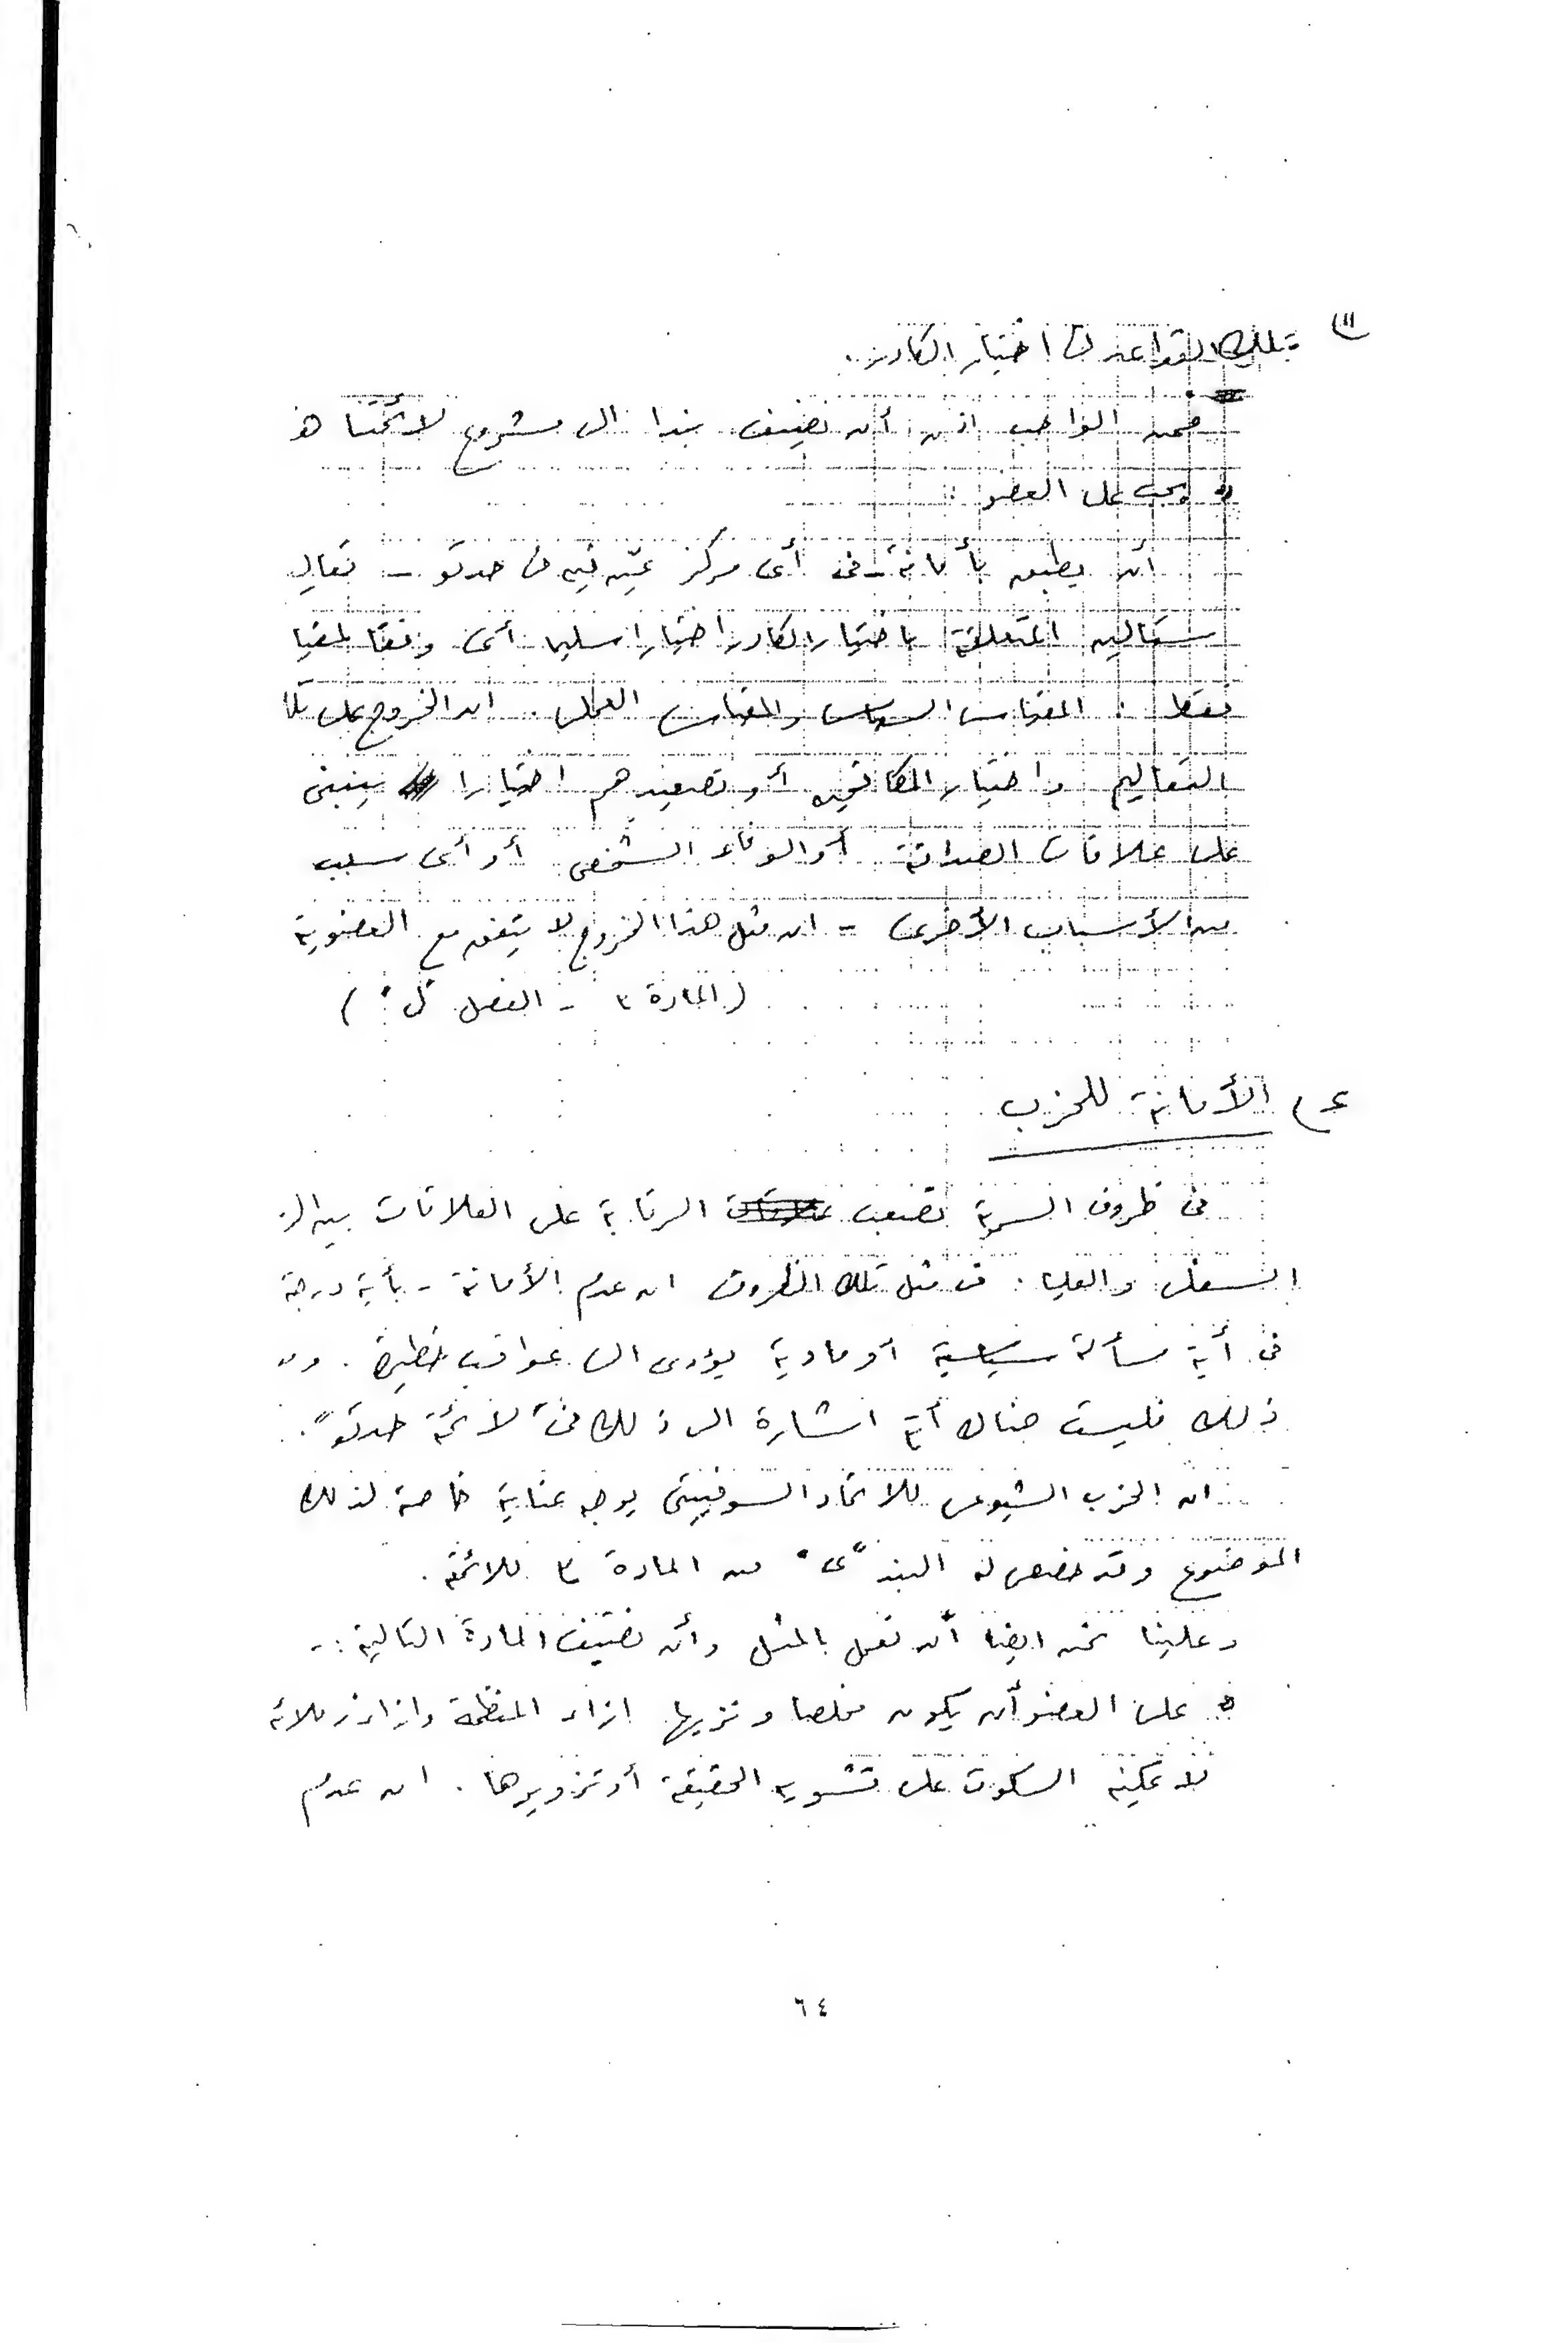 (١١
تلك القواعد فى اختيار الكادر.
فمن الواجب اذن أن نضيف بندا الى مشروع لائحتنا هو
• يجب على العضو :
أن يطبق بأمانة - فى أى مركز عيّن فيه فى حدتو - تعاليم
ستالين المتعلقة باختيار الكادر اختيارا سليما أى وفقا لمقيا
فقط : المقياس السياسى والمقياس العملى. ان الخروج على تلك
التعاليم واختيار المكافحين أو تصعيدهم اختيارا ينبنى
على علاقات الصداقة أو الولاء الشخصى أو أى سبب
من الأسباب الأخرى - ان مثل هذا الخروج لا يتفق مع العضوية
( المادة ٣ - الفصل "ل" )
٤) الأمانة للحزب
فى ظروف السرية تصعب الرقابة على العلاقات بين الر
السفلى والعليا. فى مثل تلك الظروف ان عدم الأمانة - بأية درجة
فى أية مسألة سياسية أو مادية يؤدى الى عواقب خطيرة. ومع
ذلك فليست هناك أية اشارة الى ذلك فى "لائحة حدتو".
ان الحزب الشيوعى للاتحاد السوفييتى يوجه عناية خاصة لذلك
الموضوع وقد خصص له البند "ى" من المادة ٣ للائحته.
وعلينا نحن ايضا أن نعمل بالمثل وأن نضيف المادة التالية :-
• على العضو أن يكون مخلصا ونزيها ازاء المنظمة وازاء زملائه
فلا يمكنه السكوت على تشويه الحقيقة أو تزويرها. ان عدم
٦٤